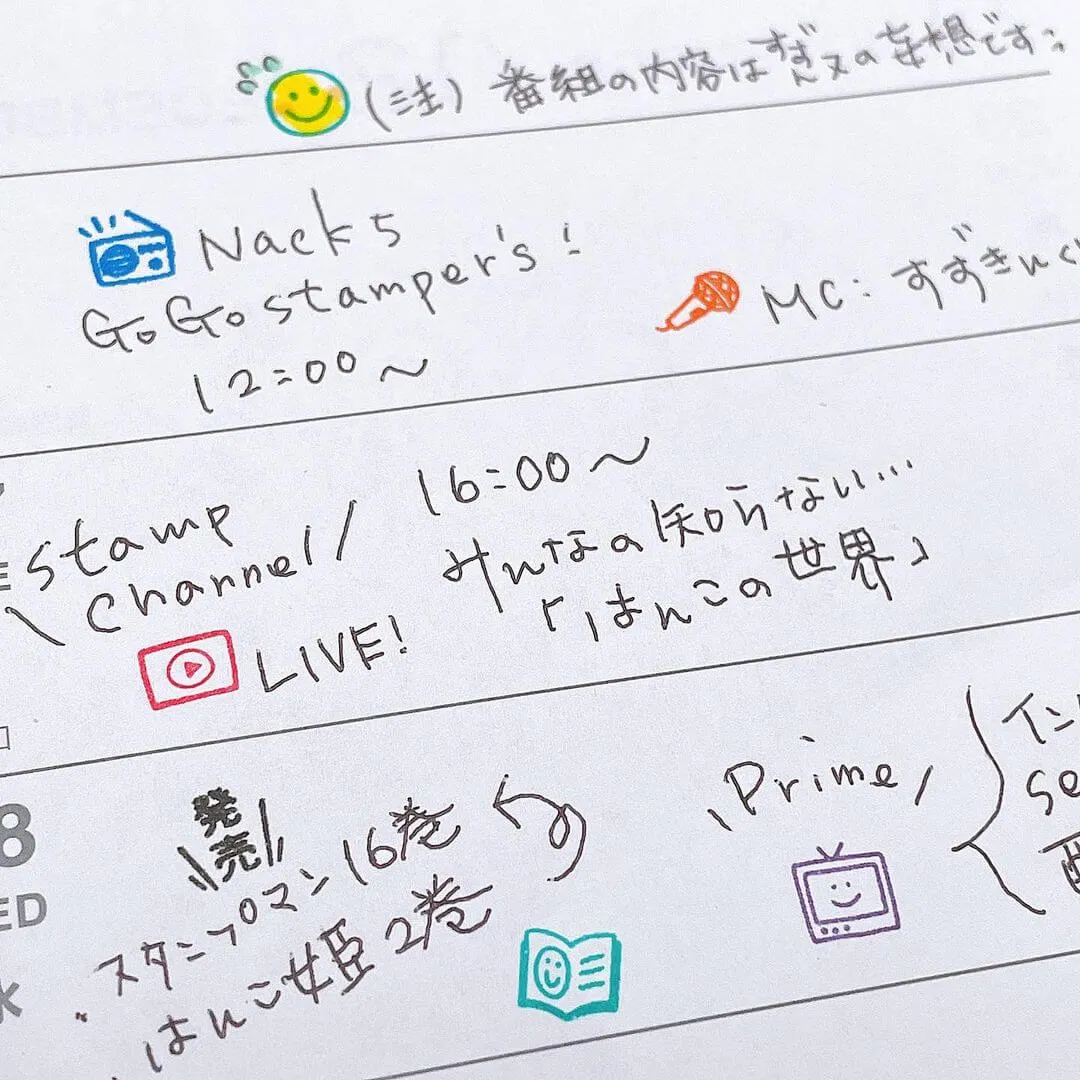 (注) 番組の内容はすぎんヌの妄想です:
Nack5
GoGo stamper's!
12:00〜
MC: すずきいぐ
stamp
Channel/
16:00〜
みんなの知らない…
「はんこの世界」
LIVE!
8
ED
発売
・スタンプマン 16巻
・はんこ姫 2巻
\Prime/
イン
se